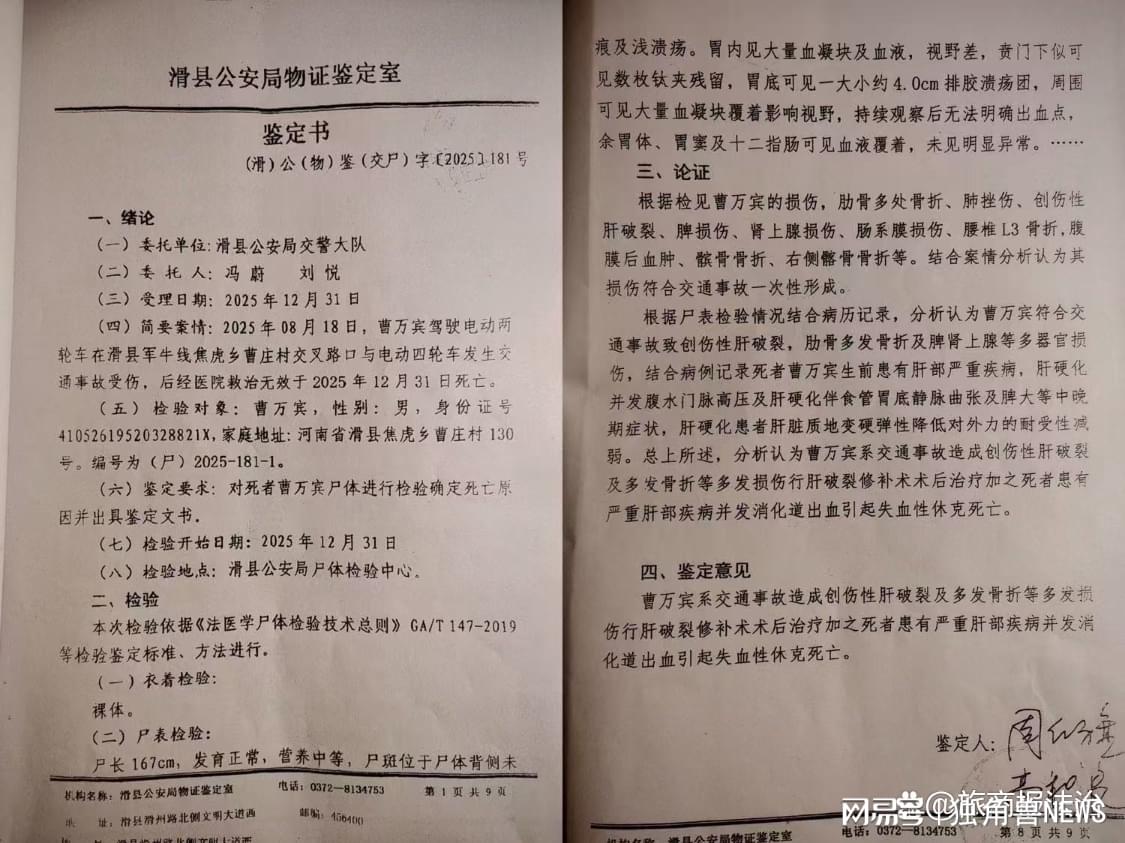 滑县公安局物证鉴定室
鉴定书
（滑）公（物）鉴（交尸）字〔2025〕181号
一、绪论
（一）委托单位：滑县公安局交警大队
（二）委 托 人：冯 蔚　刘 悦
（三）受理日期：2025年12月31日
（四）简要案情：2025年08月18日，曹万宾驾驶电动两
轮车在滑县军牛线焦虎乡曹庄村交叉路口与电动四轮车发生交
通事故受伤，后经医院救治无效于2025年12月31日死亡。
（五）检验对象：曹万宾，性别：男，身份证号
41052619520328821X，家庭地址：河南省滑县焦虎乡曹庄村130
号。编号为（尸）2025-181-1。
（六）鉴定要求：对死者曹万宾尸体进行检验确定死亡原
因并出具鉴定文书。
（七）检验开始日期：2025年12月31日
（八）检验地点：滑县公安局尸体检验中心。
二、检验
本次检验依据《法医学尸体检验技术总则》GA/T 147-2019
等检验鉴定标准、方法进行。
（一）衣着检验：
裸体。
（二）尸表检验：
尸长167cm，发育正常，营养中等，尸斑位于尸体背侧未
机构名称：滑县公安局物证鉴定室　电话：0372—8134753　第1页共9页
地　址：滑县滑州路北侧文明大道西　邮编：456400
痕及浅溃疡。胃内见大量血凝块及血液，视野差，贲门下似可
见数枚钛夹残留，胃底可见一大小约4.0cm排胶溃疡团，周围
可见大量血凝块覆着影响视野，持续观察后无法明确出血点，
余胃体、胃窦及十二指肠可见血液覆着，未见明显异常。……
三、论证
根据检见曹万宾的损伤，肋骨多处骨折、肺挫伤、创伤性
肝破裂、脾损伤、肾上腺损伤、肠系膜损伤、腰椎L3骨折，腹
膜后血肿、髌骨骨折、右侧髂骨骨折等。结合案情分析认为其
损伤符合交通事故一次性形成。
根据尸表检验情况结合病历记录，分析认为曹万宾符合交
通事故致创伤性肝破裂，肋骨多发骨折及脾肾上腺等多器官损
伤，结合病例记录死者曹万宾生前患有肝部严重疾病，肝硬化
并发腹水门脉高压及肝硬化伴食管胃底静脉曲张及脾大等中晚
期症状，肝硬化患者肝脏质地变硬弹性降低对外力的耐受性减
弱。总上所述，分析认为曹万宾系交通事故造成创伤性肝破裂
及多发骨折等多发损伤行肝破裂修补术术后治疗加之死者患有
严重肝部疾病并发消化道出血引起失血性休克死亡。
四、鉴定意见
曹万宾系交通事故造成创伤性肝破裂及多发骨折等多发损
伤行肝破裂修补术术后治疗加之死者患有严重肝部疾病并发消
化道出血引起失血性休克死亡。
鉴定人：
电话：0372—8134753　第8页共9页